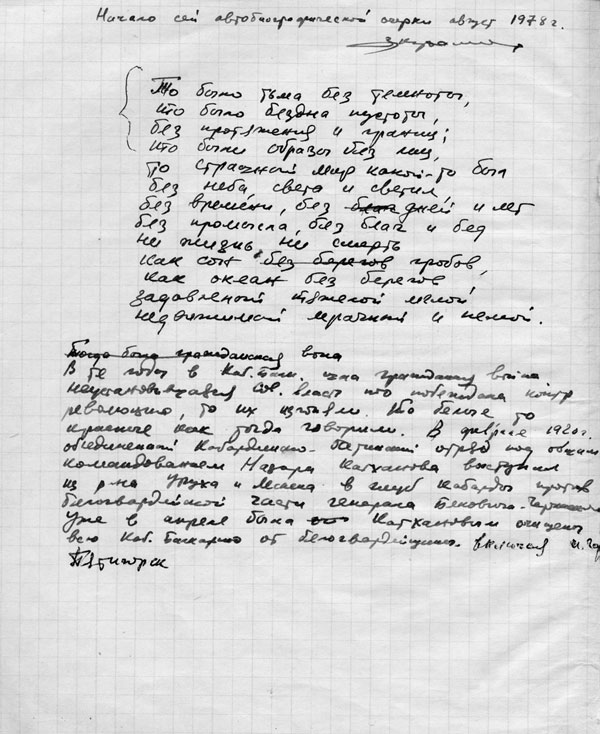 Начало сей автобиографической очерки август 1978 г.
То было тьма без темноты,
то было бездна пустоты,
без протяжения и границ;
то были образы без лиц,
то страшный мир какой-то был
без неба, света и светил,
без времени, без благ дней и лет
без промысла, без благ и бед
ни жизнь ни смерть
как сон без берегов гробов,
как океан без берегов
задавленный тяжелой мглой
недвижимый мрачный и немой.
Тогда была гражданская вона
В те годы в Каб. шла гражданская война
Сов. власть то побеждала контр
революцию, то их изгоняли. То белые то
красные как тогда говорили. В феврале 1920 г.
объединенный Кабардинско- отряд под общим
командованием Назора Катханова выступил
из р-на Уруха и Лескена в глуб Кабарды против
белогвардейской части генерала Бековича-
Уже в апреле была Катхановым очищен
всю Каб. Балкарию от белогвардейщины. включая и гор
Пятигорск